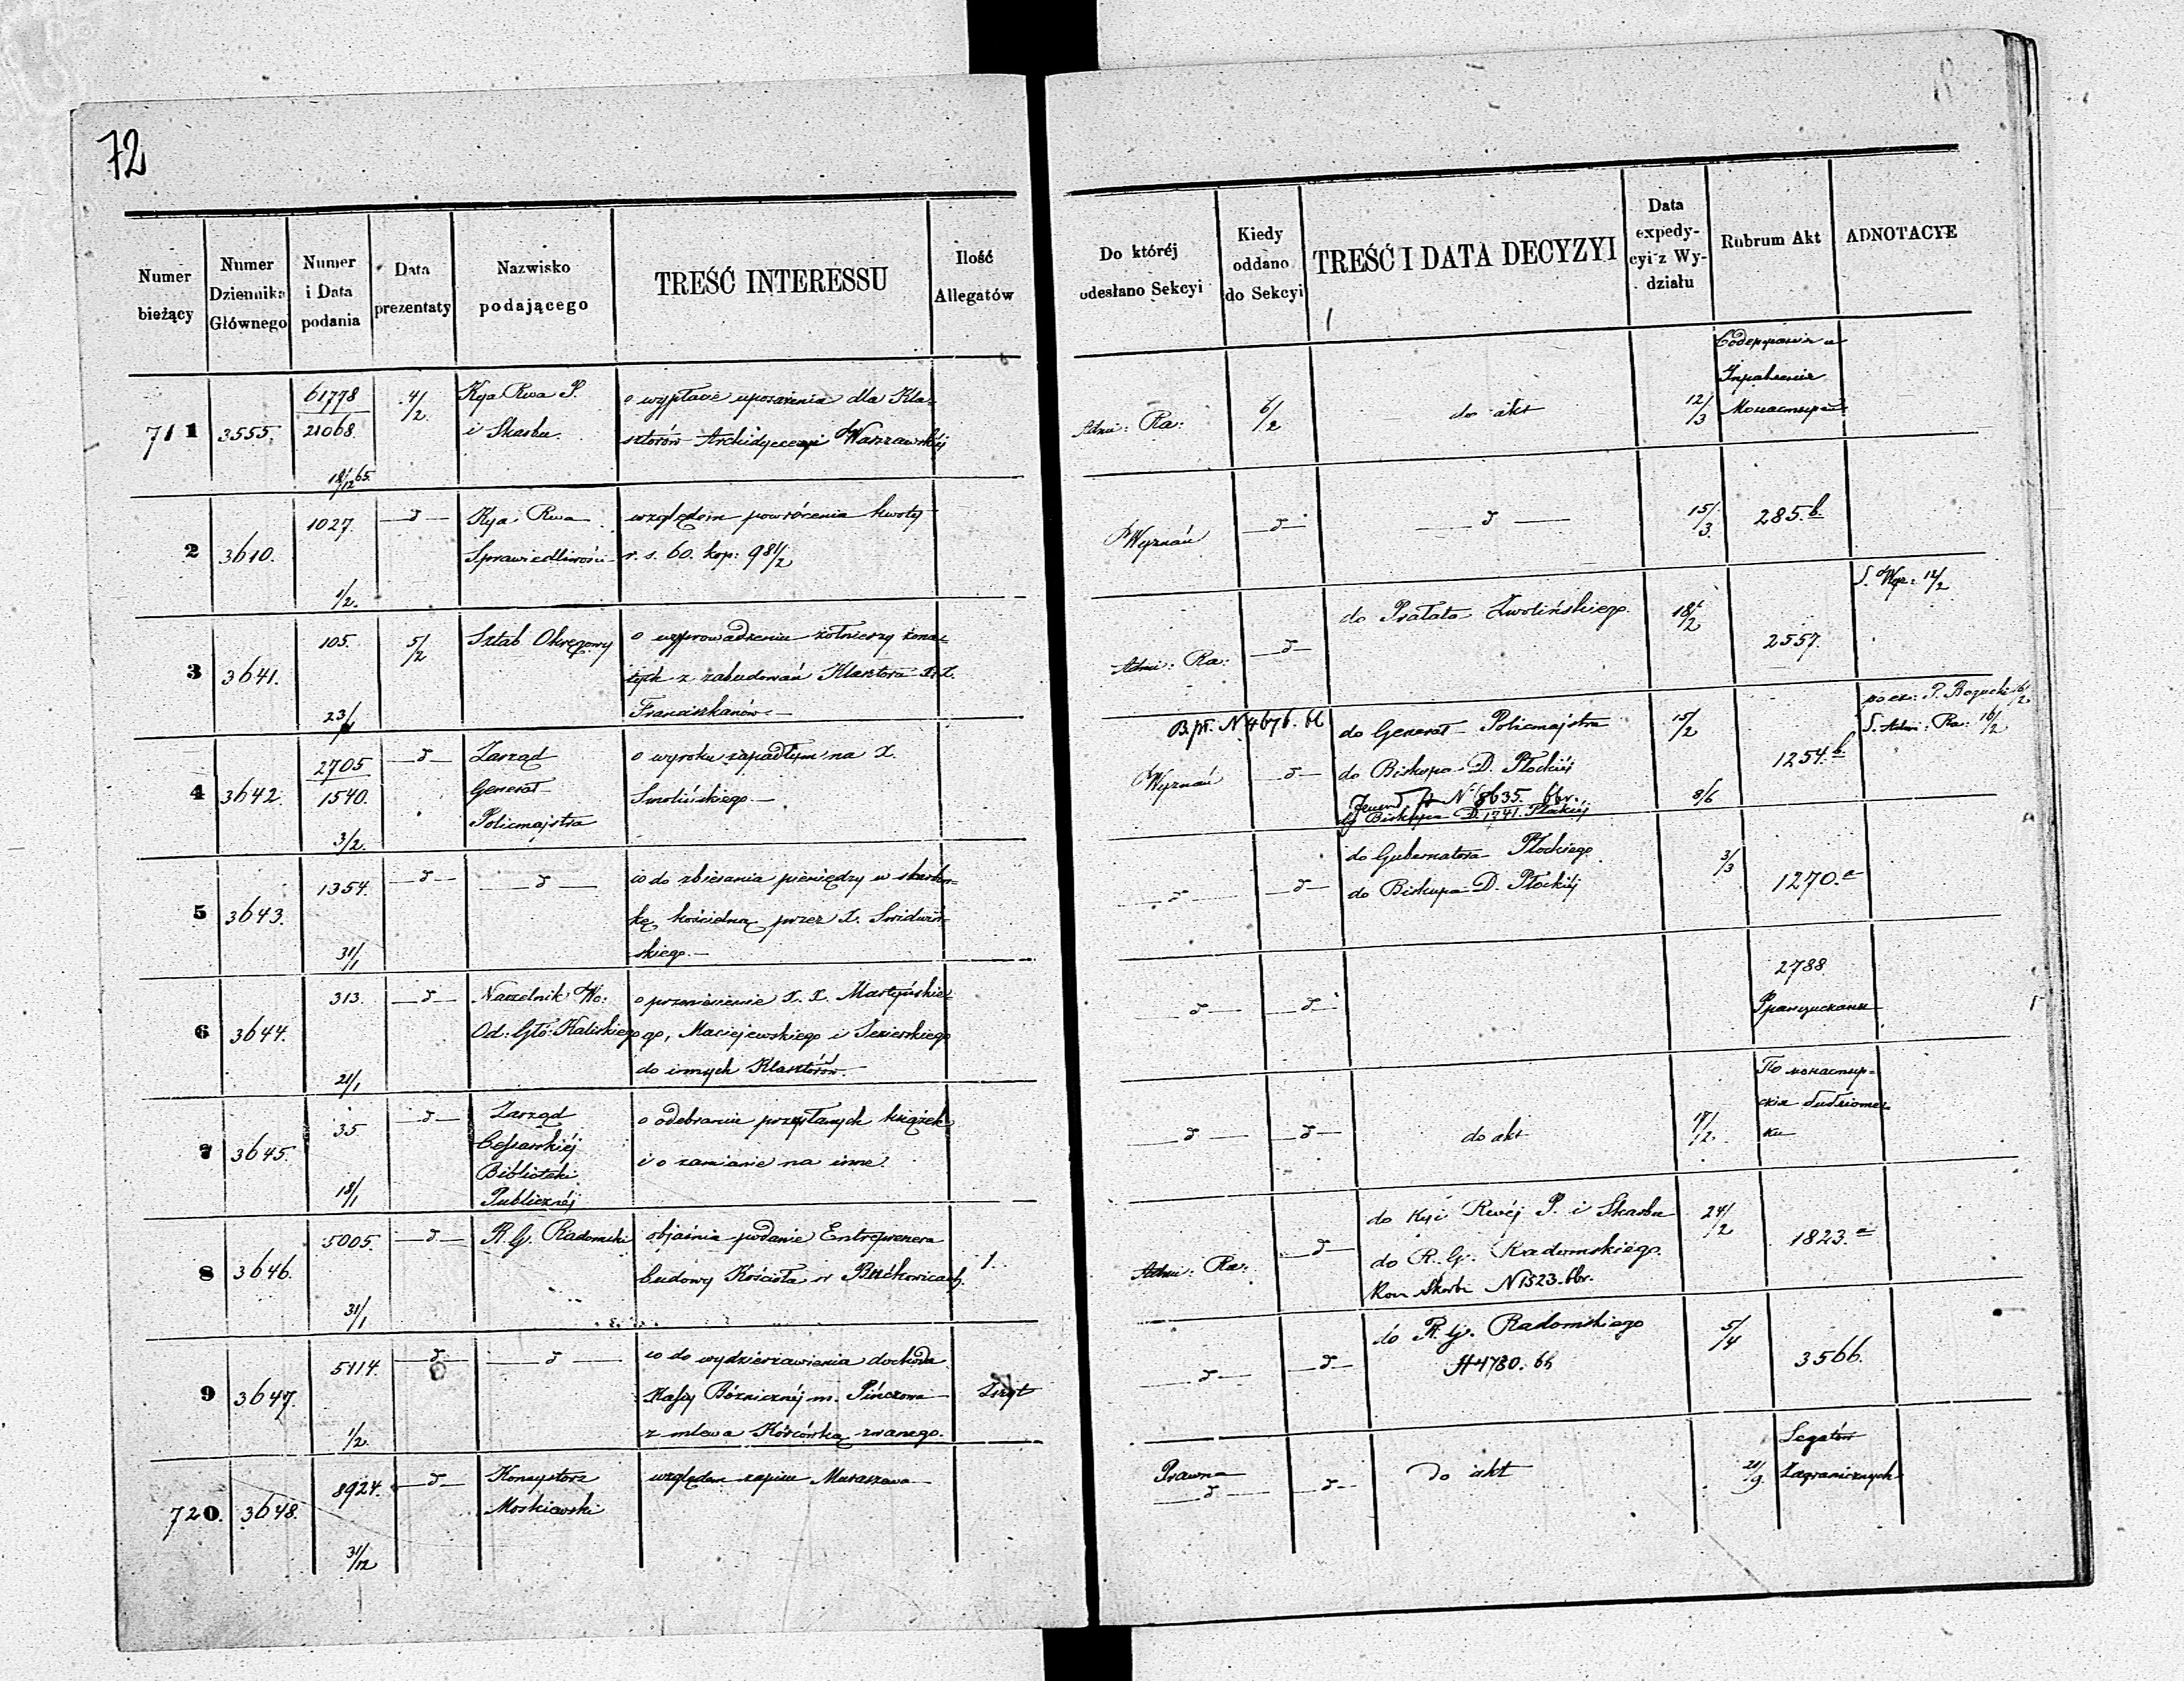 72
Numer bieżący
Numer Dziennika Głównego
Numer i Data podania
Data prezentaty
Nazwisko podającego
TREŚĆ INTERESSU
Ilość Allegatów
Do któréj odesłano Sekcyi
Kiedy oddano do Sekcyi
TREŚĆ I DATA DECYZYI
Data expedycyi z Wydziału
Rubrum Akt
ADNOTACYE
711
3555.
61778
21068.
18/12 65.
4/2.
Kya Rwa P.
i Skarbu.
o wypłacie uposażenia dla Kla=
sztorów Archidyecezyi Warszawskiéj
Admi: Ra:
6/2
do akt
12/3
Монастырей
2
3610.
1027.
1/2.
—d—
Kya Rwa
Sprawiedliwości
względem powrócenia kwoty
r. s. 60. kop: 98 1/2
Wyznań
—d—
—d—
15/3.
285.b.
3
3641.
105.
23/1
5/2
Sztab Okręgowy
o wyprowadzeniu żołnierzy żona=
tych z zabudowań Klasztora X.X.
Franciszkanów.—
Admi: Ra:
—d—
do Prałata Zwolińskiego.
18/2
2557.
S. Wyz: 12/2
4
3642.
2705
1540.
3/2.
—d—
Zarząd
Generał
Policmajstra
o wyroku zapadłym na X.
Smolińskiego.—
B. pt. N 4676. bl
Wyznań
—d—
do Generał Policmajstra
do Biskupa D. Płockiéj
N 8635. bbr.
Biskupa D. 1741. Płockiéj
15/2
8/6
1254.b.
P. Bogucki 16/2
S. Admi: Ra: 16/2
5
3643.
1354.
31/1
—d—
—d—
co do zbierania pieniędzy w skarbon=
kę kościelną przez X. Swidwiń=
skiego.—
—d—
—d—
do Gubernatora Płockiego
do Biskupa D. Płockiéj
3/3
1270.a
6
3644.
313.
21/1
—d—
Naczelnik Wo:
Od: Głó: Kaliskiego
o przeniesienie X. X. Martyńskie=
go, Maciejewskiego i Jezierskiego
do innych Klasztorów.
—d—
—d—
2788
Францискане
7
3645.
35.
18/1
—d—
Zarząd
Cessarskiéj
Biblioteki
Publicznéj
o odebraniu przesłanych książek
i o zamianie na inne.
—d—
—d—
do akt
17/2.
По монастыр=
скія библіоте
ки
8
3646.
5005.
31/1
—d—
R. G. Radomski
objaśnia podanie Entreprenera
budowy Kościoła w Bećkowicach.
1.
Admi: Ra:
—d—
do Kyi Rwéj P. i Skarbu
do R. G. Radomskiego.
Kom Skarbi N 1523. bbr.
24/2
1823.a
9
3647.
5114.
1/2.
—d—
—d—
co do wydzierżawienia dochodu
Kassy Bóżniczéj m. Pińczowa
z mlewa Kórcówką zwanego.
Zszyt
—d—
—d—
do R. G. Radomskiego
4780. bb
5/4
3566.
720.
3648.
8924.
31/12
—d—
Konsystorz
Moskiewski
względem zapisu Muraszewa
Prawna
—d—
—d—
do akt
21/9.
Legatów
Zagranicznych